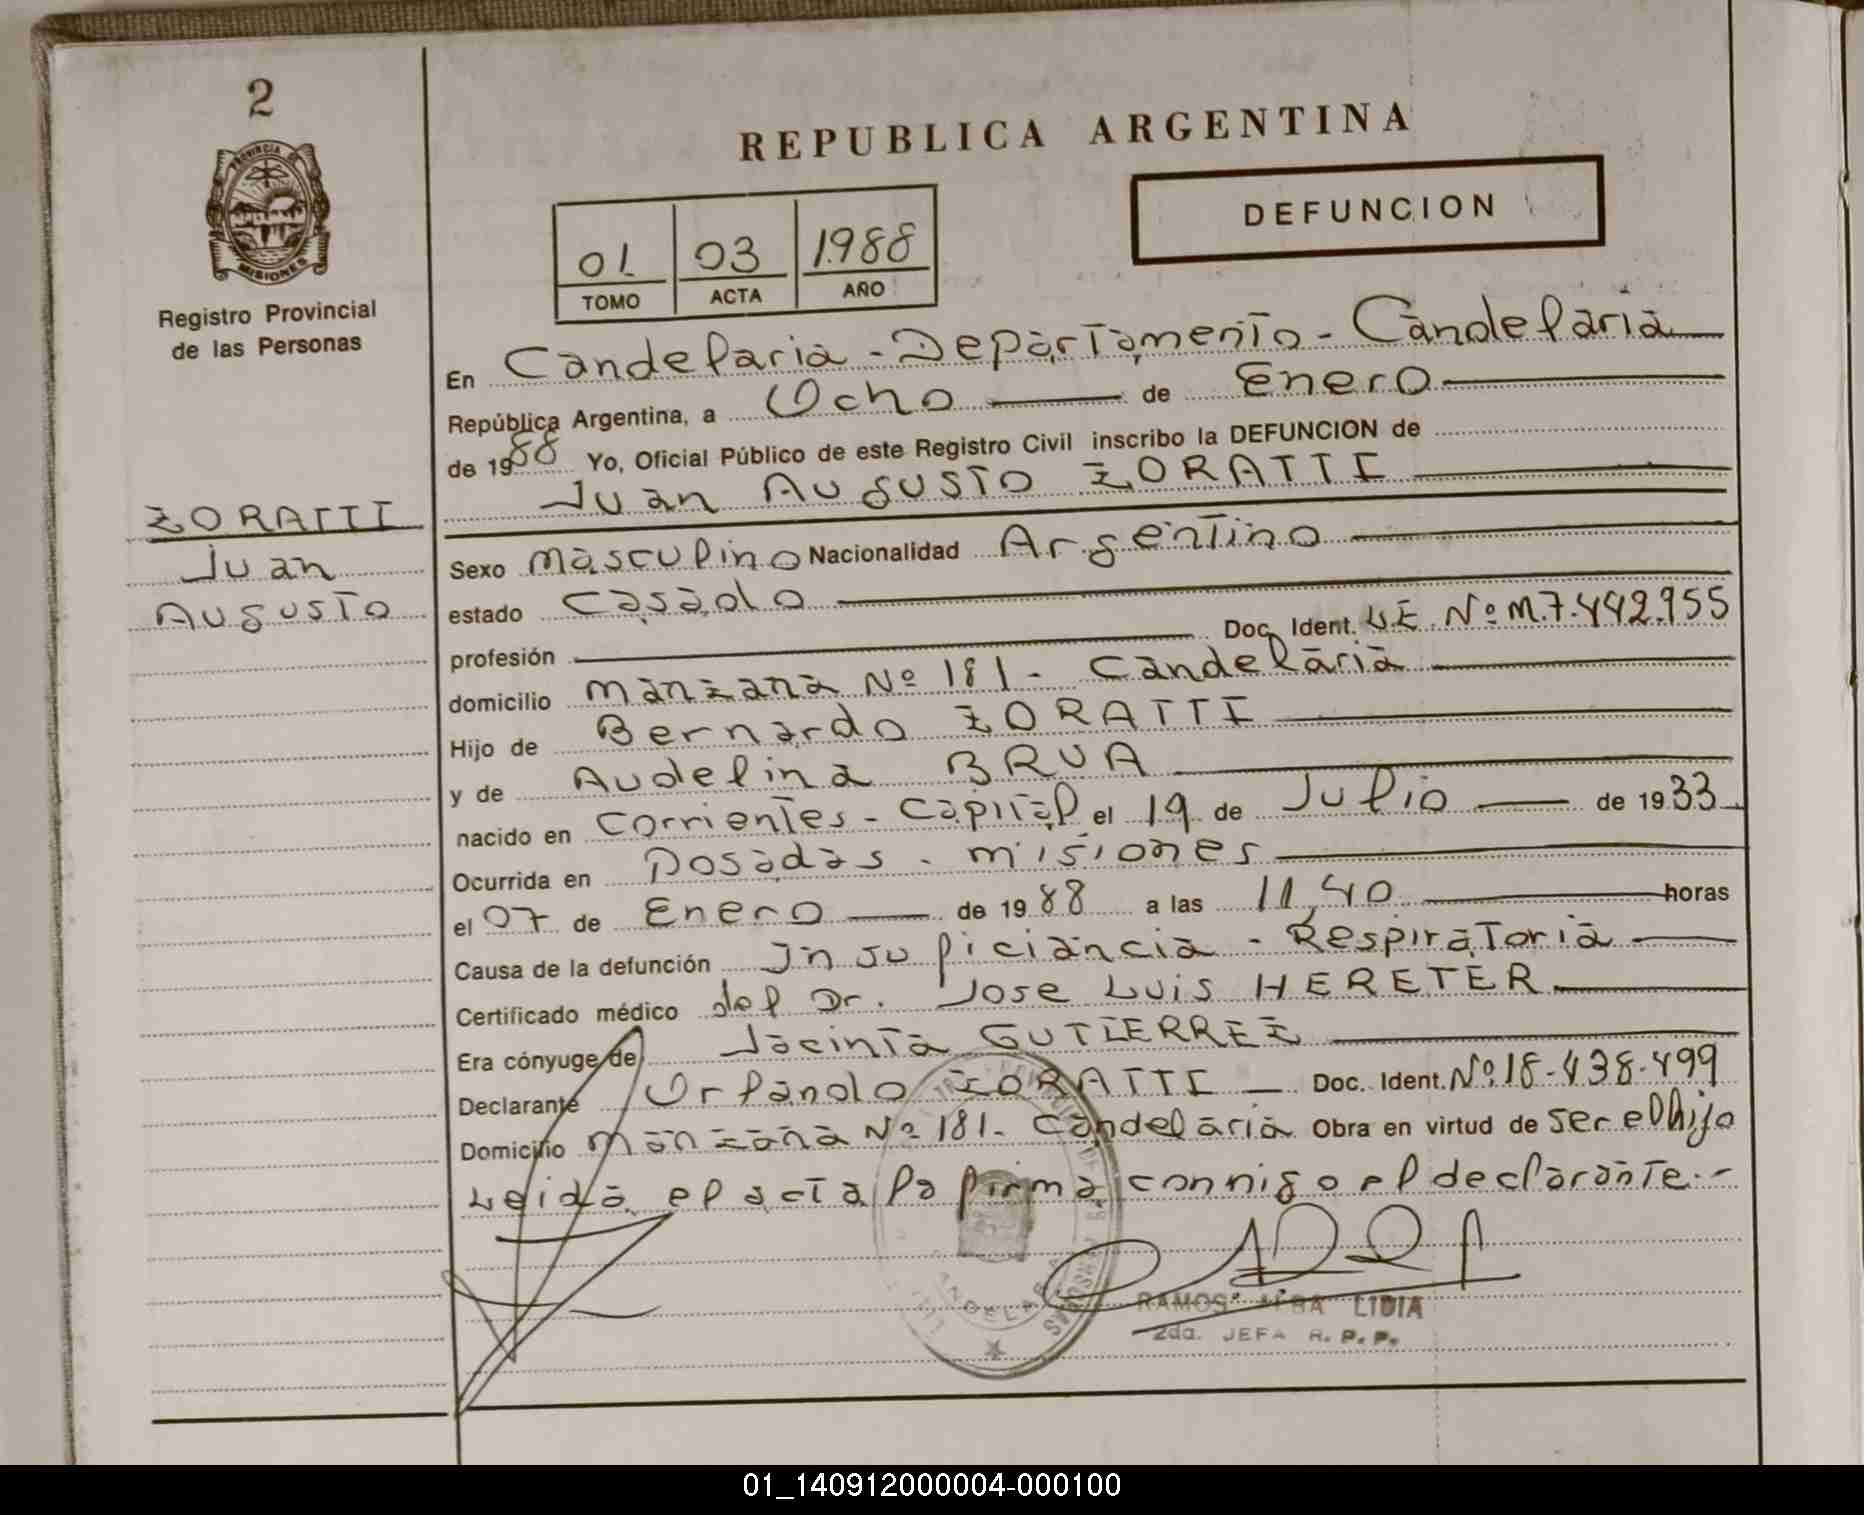 2
PROVINCIA DE
MISIONES
Registro Provincial
de las Personas
ZORATTI
Juan
Augusto
REPUBLICA ARGENTINA
DEFUNCION
01 03 1988
TOMO ACTA AÑO
En Candelaria - Departamento - Candelaria
República Argentina, a Ocho de Enero
de 1988 Yo, Oficial Público de este Registro Civil inscribo la DEFUNCION de
Juan Augusto ZORATTI
Sexo masculino Nacionalidad Argentino
estado casado
profesión Doc. Ident. L.E. Nº M.7.442.955
domicilio manzana Nº 181 - Candelaria
Hijo de Bernardo ZORATTI
y de Audelina BRUA
nacido en Corrientes - Capital el 19 de Julio de 1933
Ocurrida en Posadas - misiones
el 07 de Enero de 1988 a las 11,40 horas
Causa de la defunción Insuficiancia - Respiratoria
Certificado médico del Dr. Jose Luis HERETER
Era cónyuge de Jacinta GUTIERREZ
Declarante Orlando ZORATTI Doc. Ident. Nº 18.438.499
Domicilio manzana Nº 181 - Candelaria Obra en virtud de ser el hijo
Leida el acta la firma conmigo el declarante.-
RAMOS ALBA LIDIA
2da. JEFA R.P.P.
01_140912000004-000100